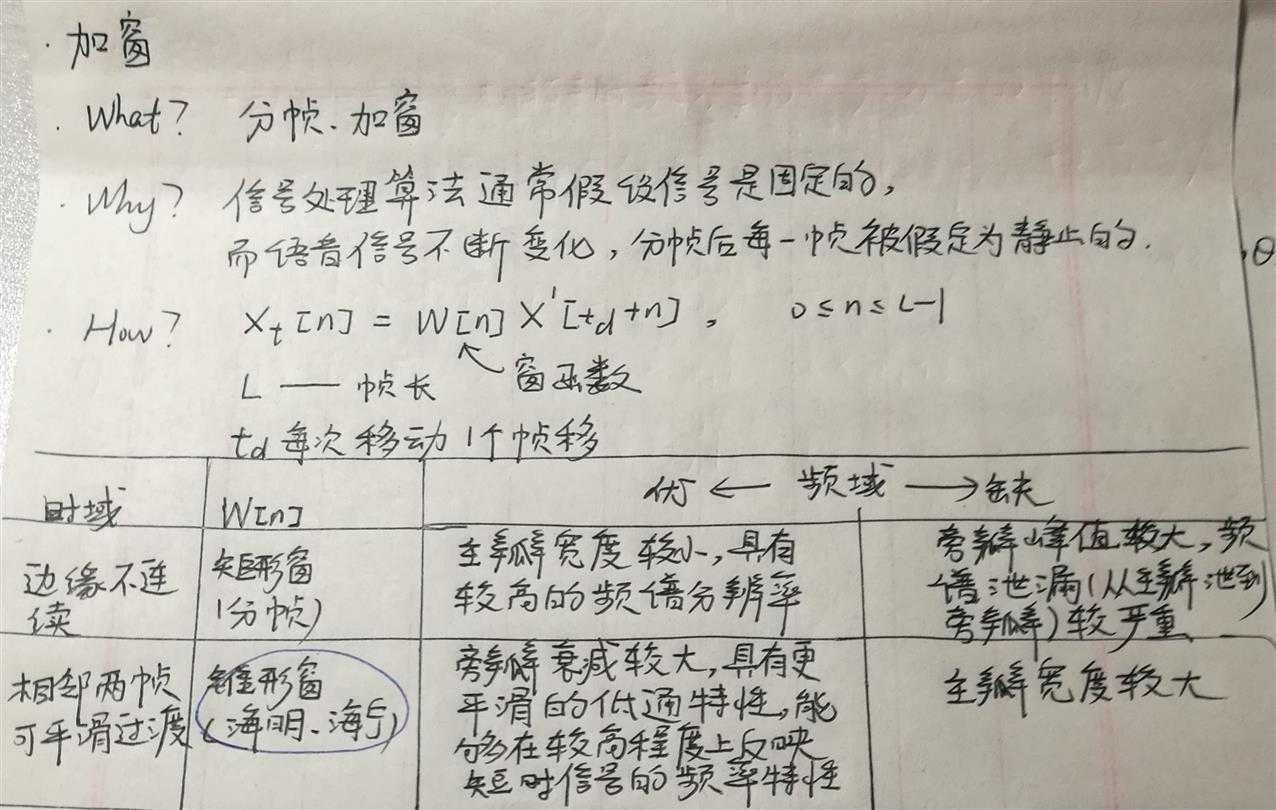 · 加窗
· What? 分帧、加窗
· Why? 信号处理算法通常假设信号是固定的,
而语音信号不断变化,分帧后每一帧被假定为静止的.
, θ
· How? X_t[n] = W[n] X'[t_d+n], 0≤n≤L-1
L —— 帧长 ↖ 窗函数
t_d 每次移动1个帧移
优 ← 频域 → 缺
时域 W[n]
边缘不连
续
矩形窗
(分帧)
主瓣宽度较小,具有
较高的频谱分辨率
旁瓣峰值较大,频
谱泄漏(从主瓣泄到
旁瓣)较严重
相邻两帧
可平滑过渡
锥形窗
(海明、海宁)
旁瓣衰减较大,具有更
平滑的低通特性,能
够在较高程度上反映
短时信号的频率特性
主瓣宽度较大